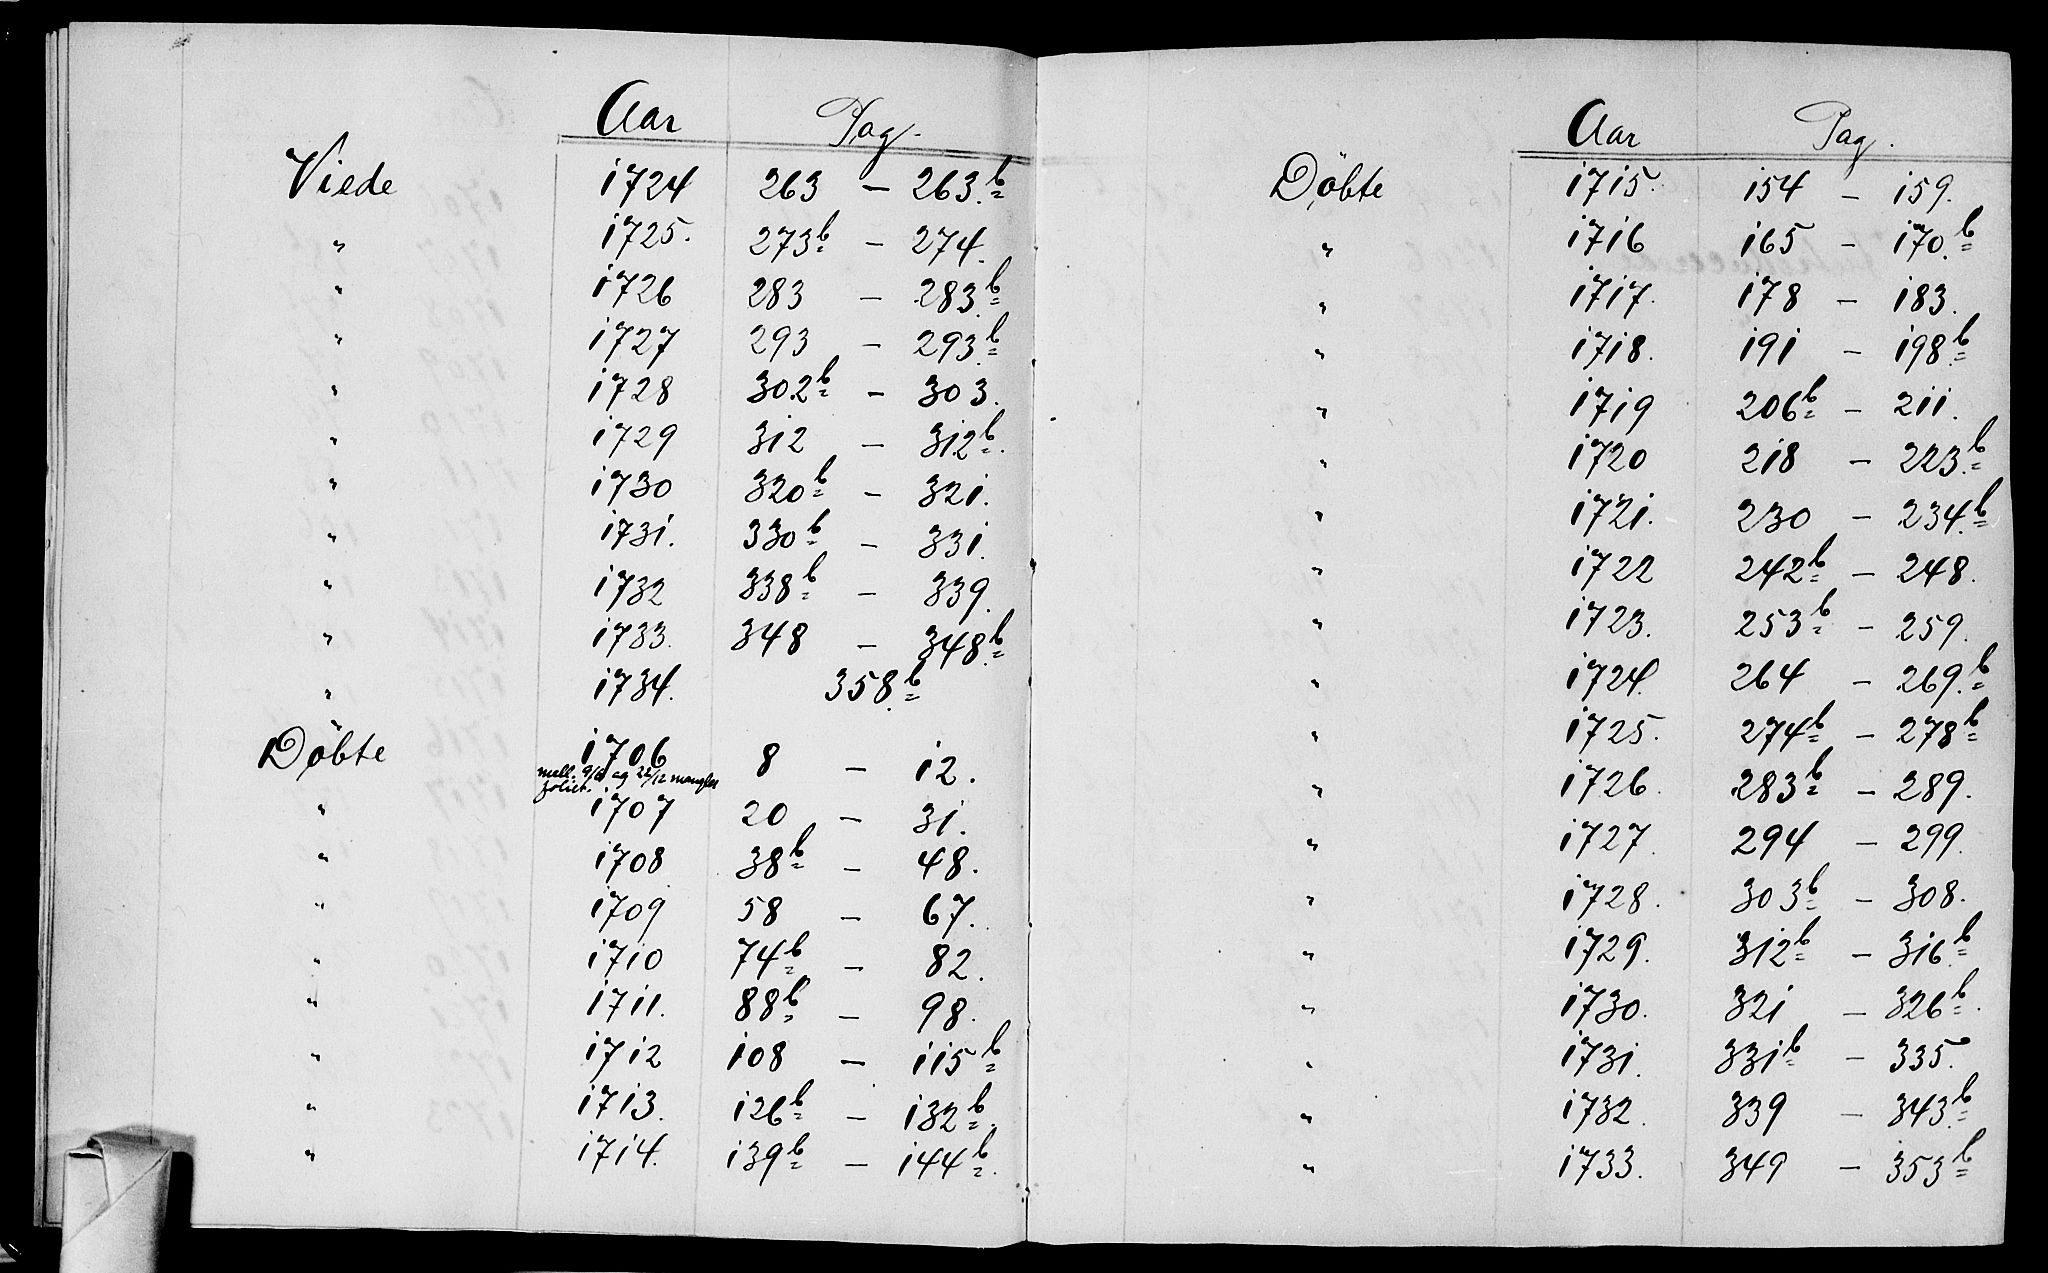 Aar Pag.
Viede 1724 263 — 263b
" 1725. 273b — 274.
" 1726 283 — 283b
" 1727 293 — 293b
" 1728 302b — 303.
" 1729 312 — 312b.
" 1730 320b — 321.
" 1731. 330b — 331.
" 1732 338b — 339.
" 1733. 348 — 348b
" 1734. 358b
Döbte 1706 8 — 12.
mell. og 22/12 mangler
foliet.
" 1707 20 — 31.
" 1708 38b — 48.
" 1709 58 — 67.
" 1710 74b — 82.
" 1711. 88b — 98.
" 1712 108 — 115b
" 1713. 126b — 132b.
" 1714. 139b — 144b.
Aar Pag.
Döbte 1715. 154 — 159.
" 1716 165 — 170b
" 1717. 178 — 183.
" 1718. 191 — 198b
" 1719 206b — 211.
" 1720 218 — 223b
" 1721. 230 — 234b
" 1722 242b — 248.
" 1723. 253b — 259.
" 1724. 264 — 269b
" 1725. 274b — 278b
" 1726. 283b — 289.
" 1727. 294 — 299.
" 1728. 303b — 308.
" 1729. 312b — 316b
" 1730. 321 — 326b.
" 1731. 331b — 335.
" 1732. 339 — 343b
" 1733. 349 — 353b